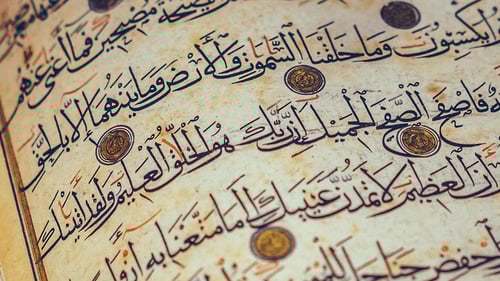 مصبحين فما أغنى عنهم
يكسبون وما خلقنا السموت والأرض وما بينهما إلا بالحق
فاصفح الصفح الجميل إن ربك هو الخلق العليم ولقد اتينك
ان العظيم لا تمدن عينيك إلى ما متعنا به أزوا
اخفض جناحك للمو